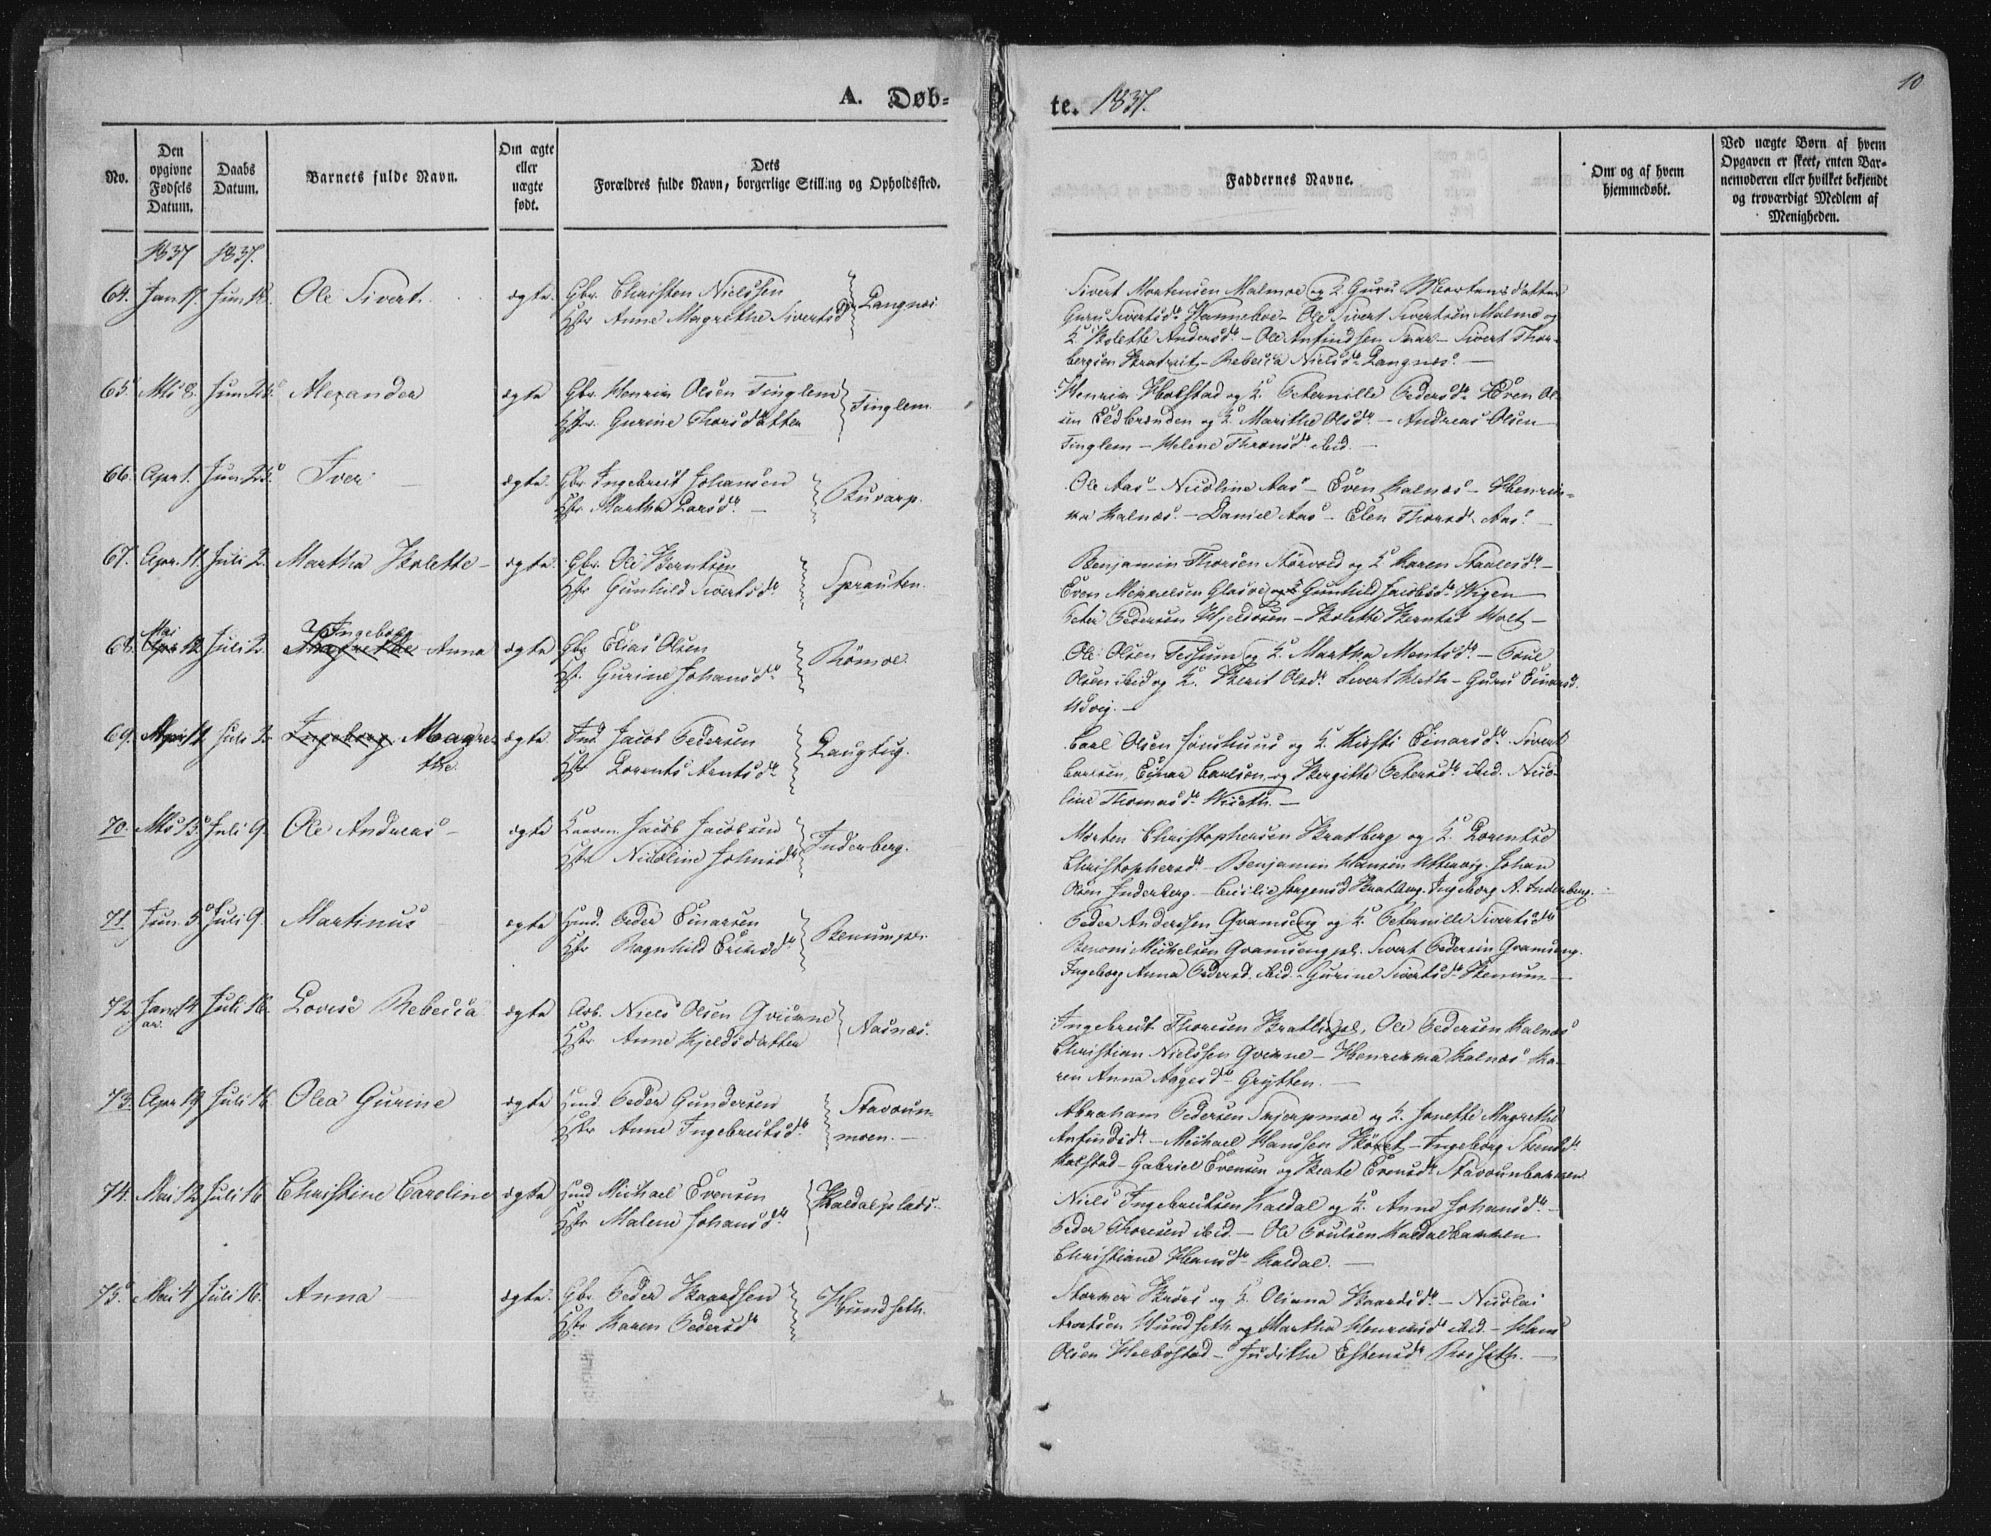 A. Døb-
te. 1837.
10
No.
Den opgivne Fødsels Datum.
Daabs Datum.
Barnets fulde Navn.
Om ægte eller uægte født.
Dets Forældres fulde Navn, borgerlige Stilling og Opholdssted.
Faddernes Navne.
Om og af hvem hjemmedøbt.
Ved uægte Børn af hvem Opgaven er skeet, enten Barnemoderen eller hvilket bekjendt og troværdigt Medlem af Menigheden.
1837 1837.
64. Jan 17. Jun 18. Ole Sivert. ægte. Gbr. Christen Nielssen
Hstr Anne Magrethe Sivertsd Langnæs
Sivert Mortensen Malmoe og K. Guru Mortensdatter
Guru Sivertsdr Vanneboe - Ole Sivert Sivertsen Malmo og
K. Kolette Andersdr - Ole Anfindsen - Sivert Thor-
bergsen - Rebecca Nielsdr Langnæs. -
65. Mts 8. Jun 25. Alexander ægte Gbr. Henrik Olsen Tinglem
Hstr. Gurine Thorsdatter Tinglem.
Henrik Holstad og K. Peternille Pedersdr Even Ol-
sen Eldbrenden og K. Marithe Olsdr - Andreas Olsen
Tinglem - Helene ibid. -
66. Apr 1. Jun 25. Iver - ægte. Gbr Ingebret Johansen
Hstr Martha Larsdr - Ruvarp.
Ole Aas - Nicoline Aas - Even Kalnæs - Henrik-
ka Kalnæs. - Daniel Aas - Elen Thorsdr Aas. -
67. Apr. 11. Juli 2. Martha Kolette - ægte. Gbr. Ole Berntsen
Hstr Gunhild Sivertsdr Sprauten.
Benjamin Thorsen Størvold og K Karen Staalesdr -
Even Mikkelsen og Gunhild Jacobsdr Vigen
Peter Pedersen - Kolette Berntsd Holt -
68. Mai 12. Juli 2. Ingeborg Anna ægte Gbr Elias Olsen
Hst. Gurine Johansdr Römoe.
Ole Olsen og K. Martha - Poul
Olsen ibid og K. Berit Olsdr Sivert - Guru Einarsd.
Utvig. -
69. Juli 2. Ingeborg Magre- ægte. Ind. Jacob Pedersen
the. Hst Lorents Arntsdr Laugtug.
Carl Olsen og K. Kirsti Einarsdr Sivert
Carlsen, Einar Carlsen og Bergitte Petersdr ibid. Nico-
line Thomasdr -
70. Mts 13. Juli 9. Ole Andreas - ægte Jacob Jacobsen
Hstr Nicoline Johnsdr Inderberg.
Morten Christophersen Bratberg og K. Lorentse
Christophersdr - Benjamin Hansen Utvig. Johan
Olsen Inderberg. - Cicilie Jørgensd Bratberg. Ingeborg A. Inderberg.
71. Jun. 5 Juli 9. Martinus ægte Huusd. Peder Einarsen
Hstr Ragnhild Ericsdr Benumpl.
Peder Anderssen Gramseng og K. Peternille Sivertsdr
Benoni Michelsen Gramsengpl. Sivert Pedersen Gramseng.
Ingeborg Anna Pedersd. ibid. - Gurine Sivertsdr Benum -
72. Januar 14. Juli 16. Lovise Rebecca ægte Arb. Niels Olsen Qvierne
Hstr Anne Kjeldsdatter Aasnæs.
Ingebrigt Thoresen Ole Pedersen Kalnæs
Christian Nielssen Qverne - Henricka Kalnæs Ka-
ren Anna Aagesdr Grytten. -
73. Apr 19 Juli 16. Olea Gurine ægte Huusd. Peder Gundersen
Hstr Anne Ingebretsdr Stavrum-
moen. -
Abraham Pedersen Skjerpmoe og K. Janette Magrethe
Anfindsdr - Michael Hanssen - Ingeborg
Kalstad - Gabriel Evensen og Beate Evensdr
74. Mai 12. Juli 16. Christine Caroline ægte Huusd. Michael Evensen
Hstr Malene Johansdr Kaldalplads.
Niels Ingebretsen Kaldal og K. Anne Johansdr
Peder Thoresen ibid. - Ole Poulsen Kaldalbakken
Christiane Hansdr Kaldal. -
75. Mai 4 Juli 16. Anna - ægte. Gbr. Peder Baardsen
Hstr Karen Pedersdr Hundseth.
Stormer og K. Oliana Baardsdr - Nicolai
Arntsen Hundseth og Martha Henriksd ibid. - Hans
Olsen Helbostad - Judithe Estensdr Roeseth. -